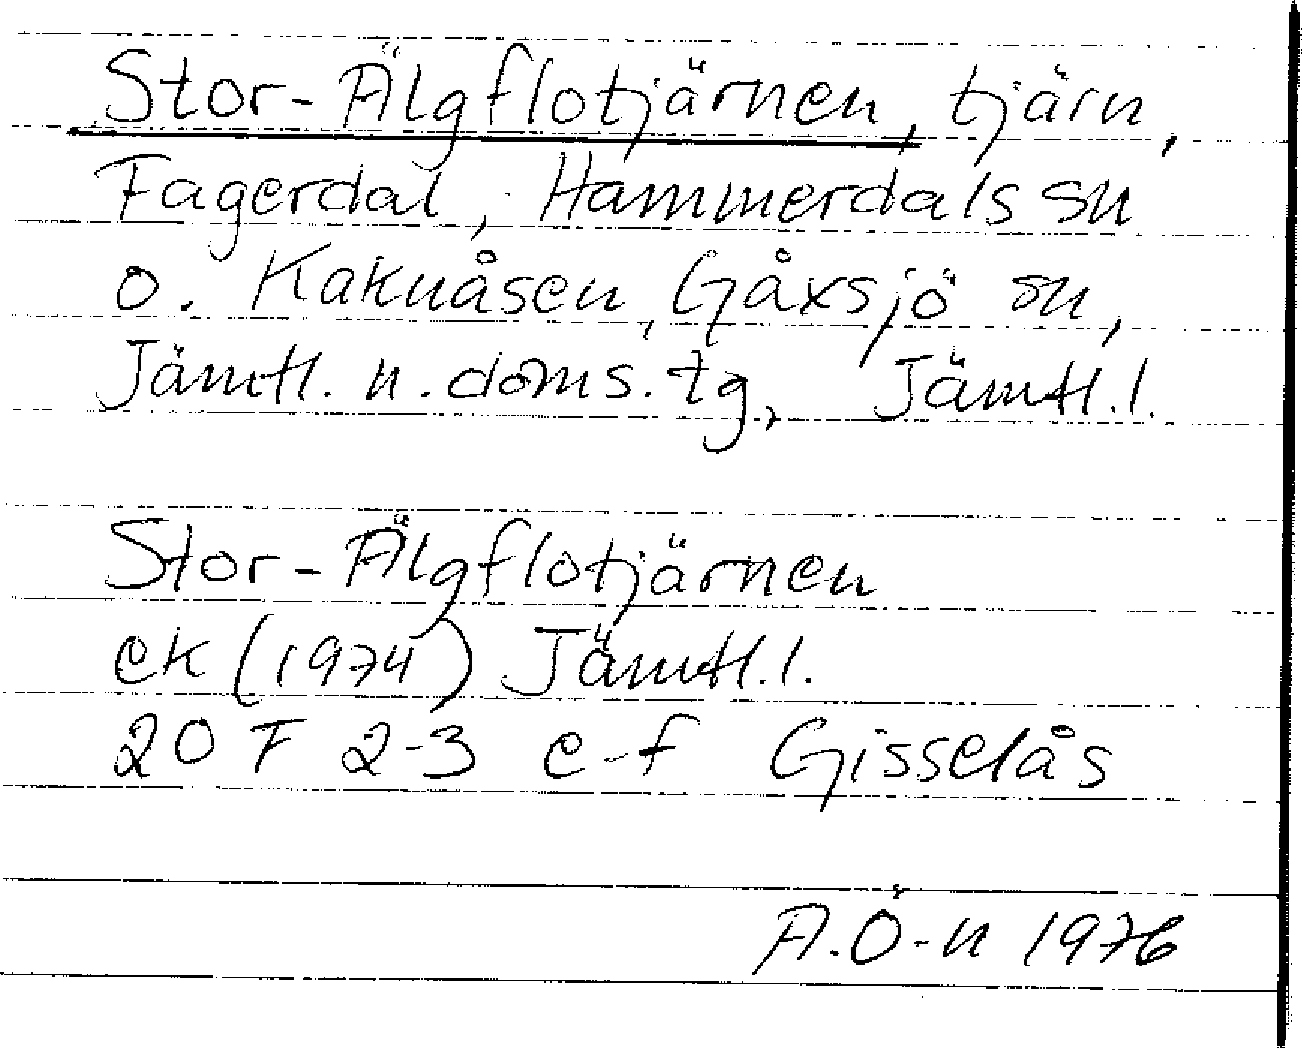 Stor-Älgflotjärnen, tjärn,
Fagerdal, Hammerdals sn
o. Kakuåsen, Gåxsjö sn,
Jämtl. n. doms. tg, Jämtl.l.
Stor-Älgflotjärnen
ek (1974) Jämtl.l.
20 F 2-3 e-f Gisselås
A.Ö-n 1976